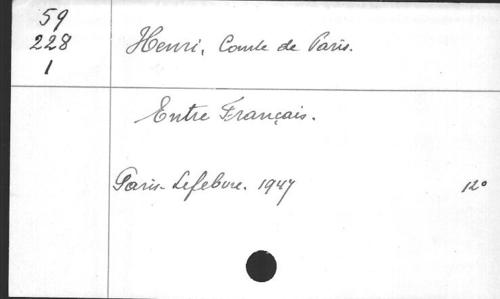 59
228
1
Henri, Comte de Paris.
Entre Français.
Paris - Lefebvre. 1947 12°